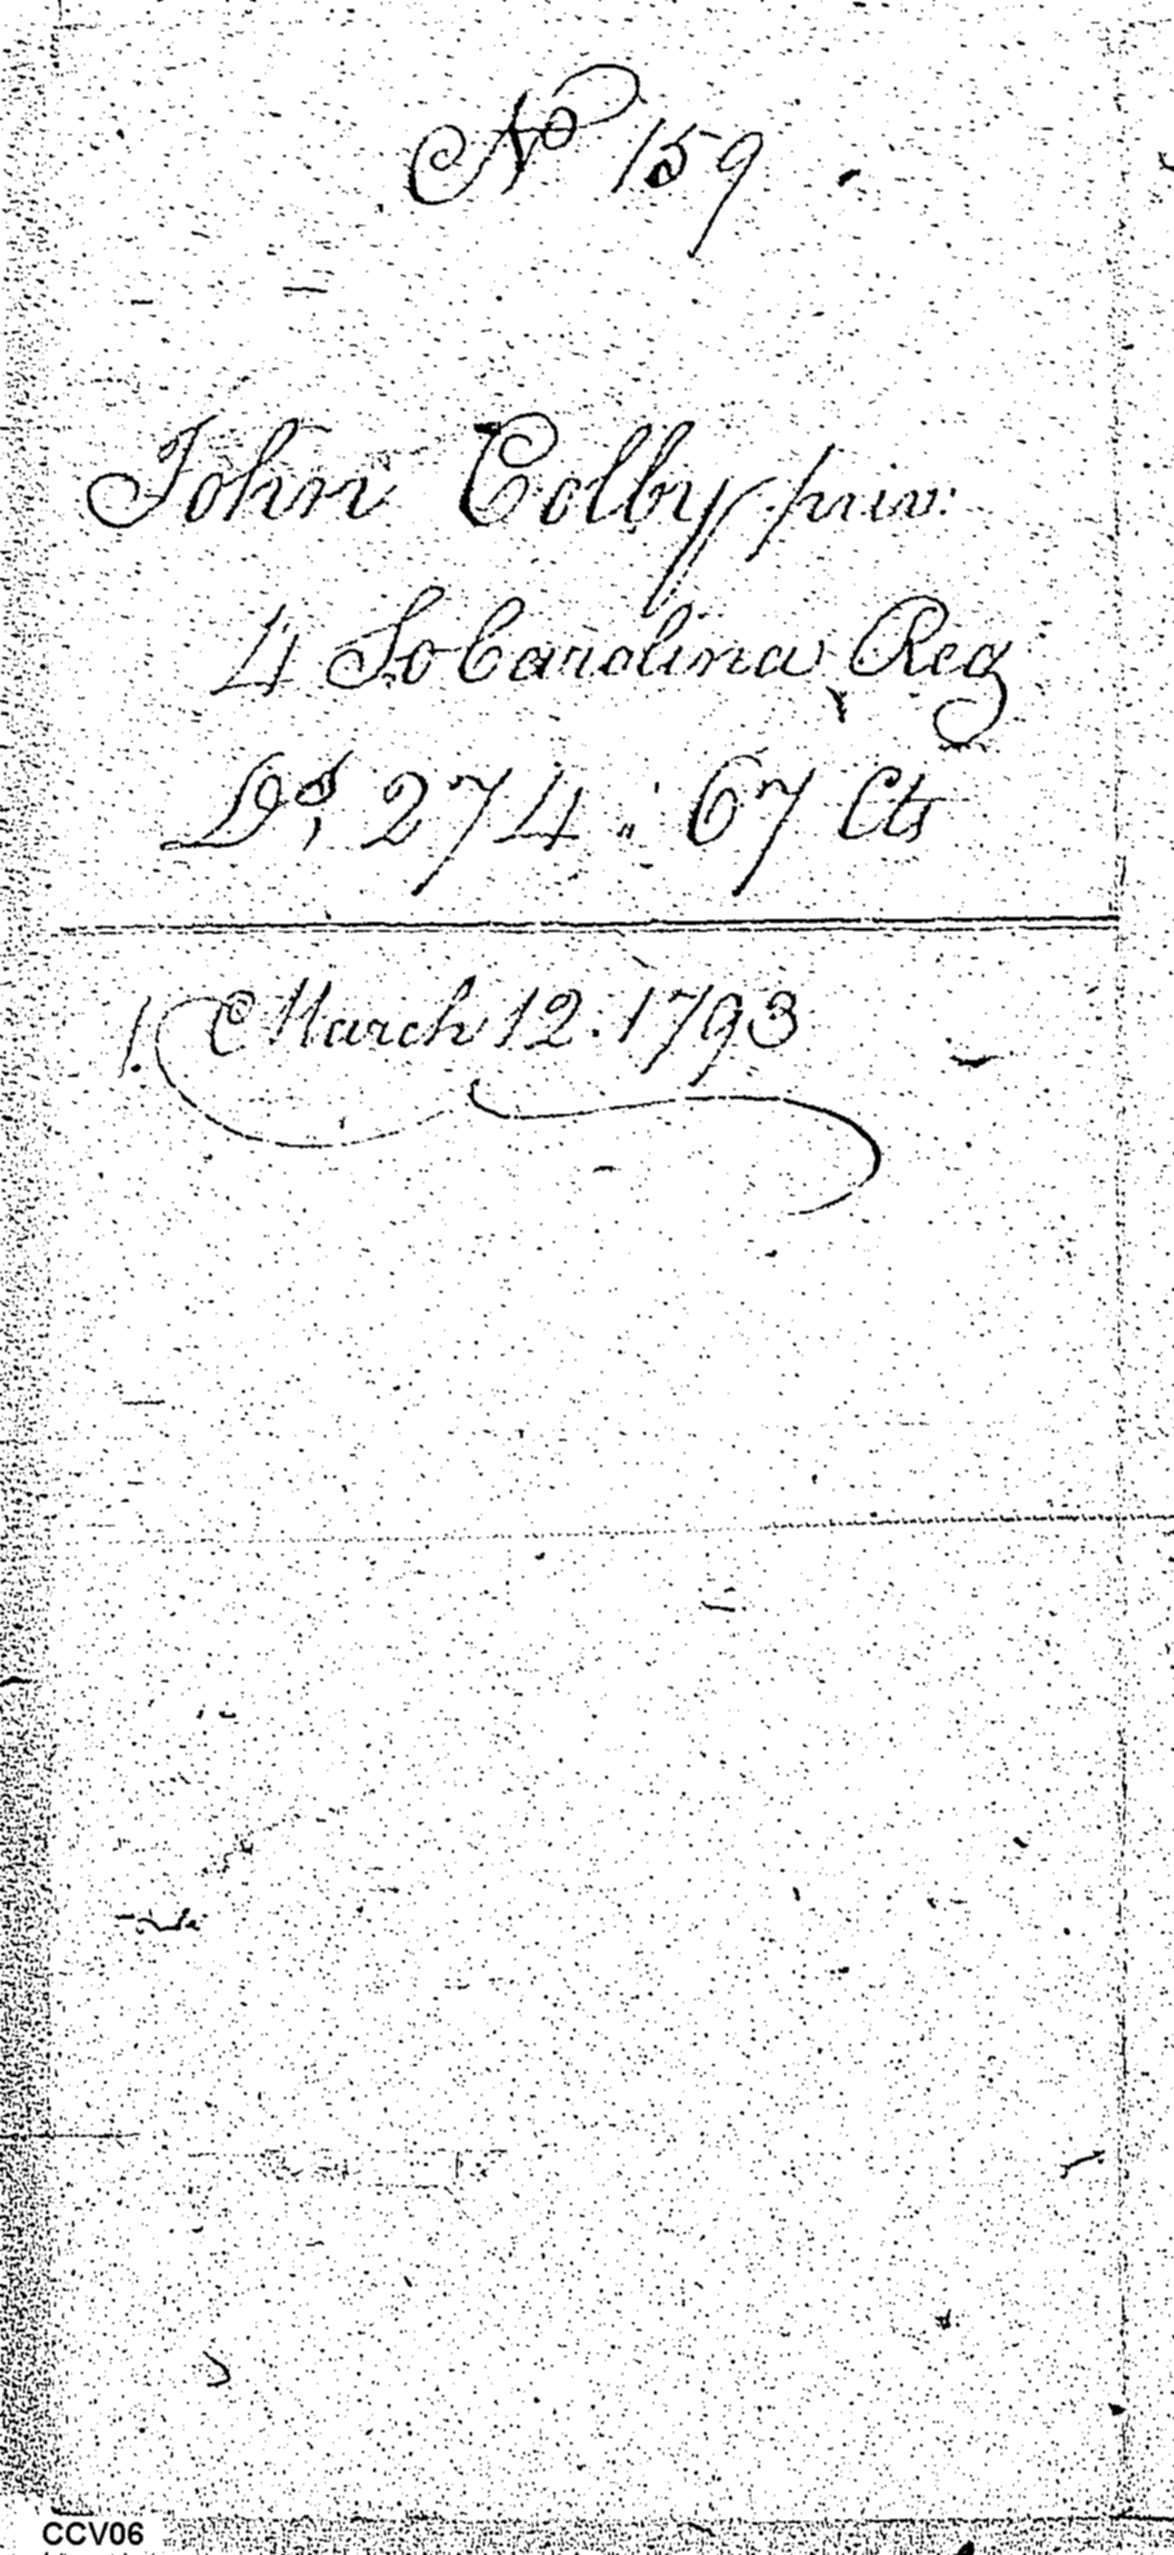 No 159
John Colby priv:
4 So Carolina Reg
Ds, 274 " 67 Cts
1. March 12. 1793
CCV06